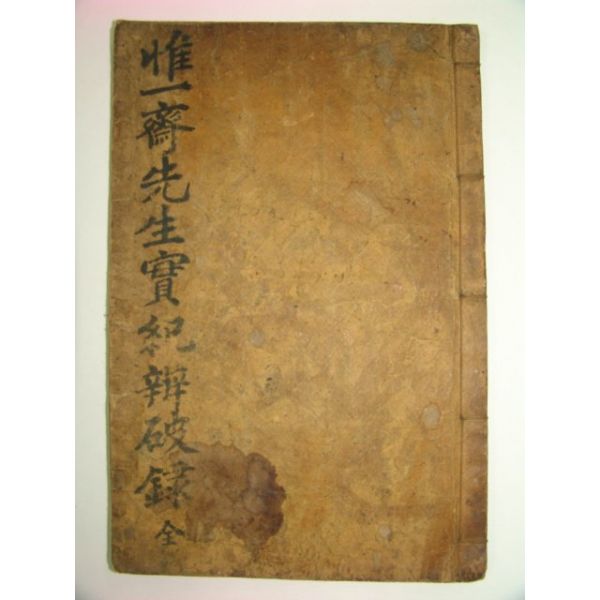 惟一齋先生實紀辨破録 全